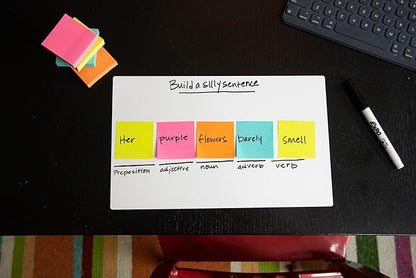 Build a silly sentence
Her purple flowers barely smell
Preposition adjective noun adverb verb
EXPO